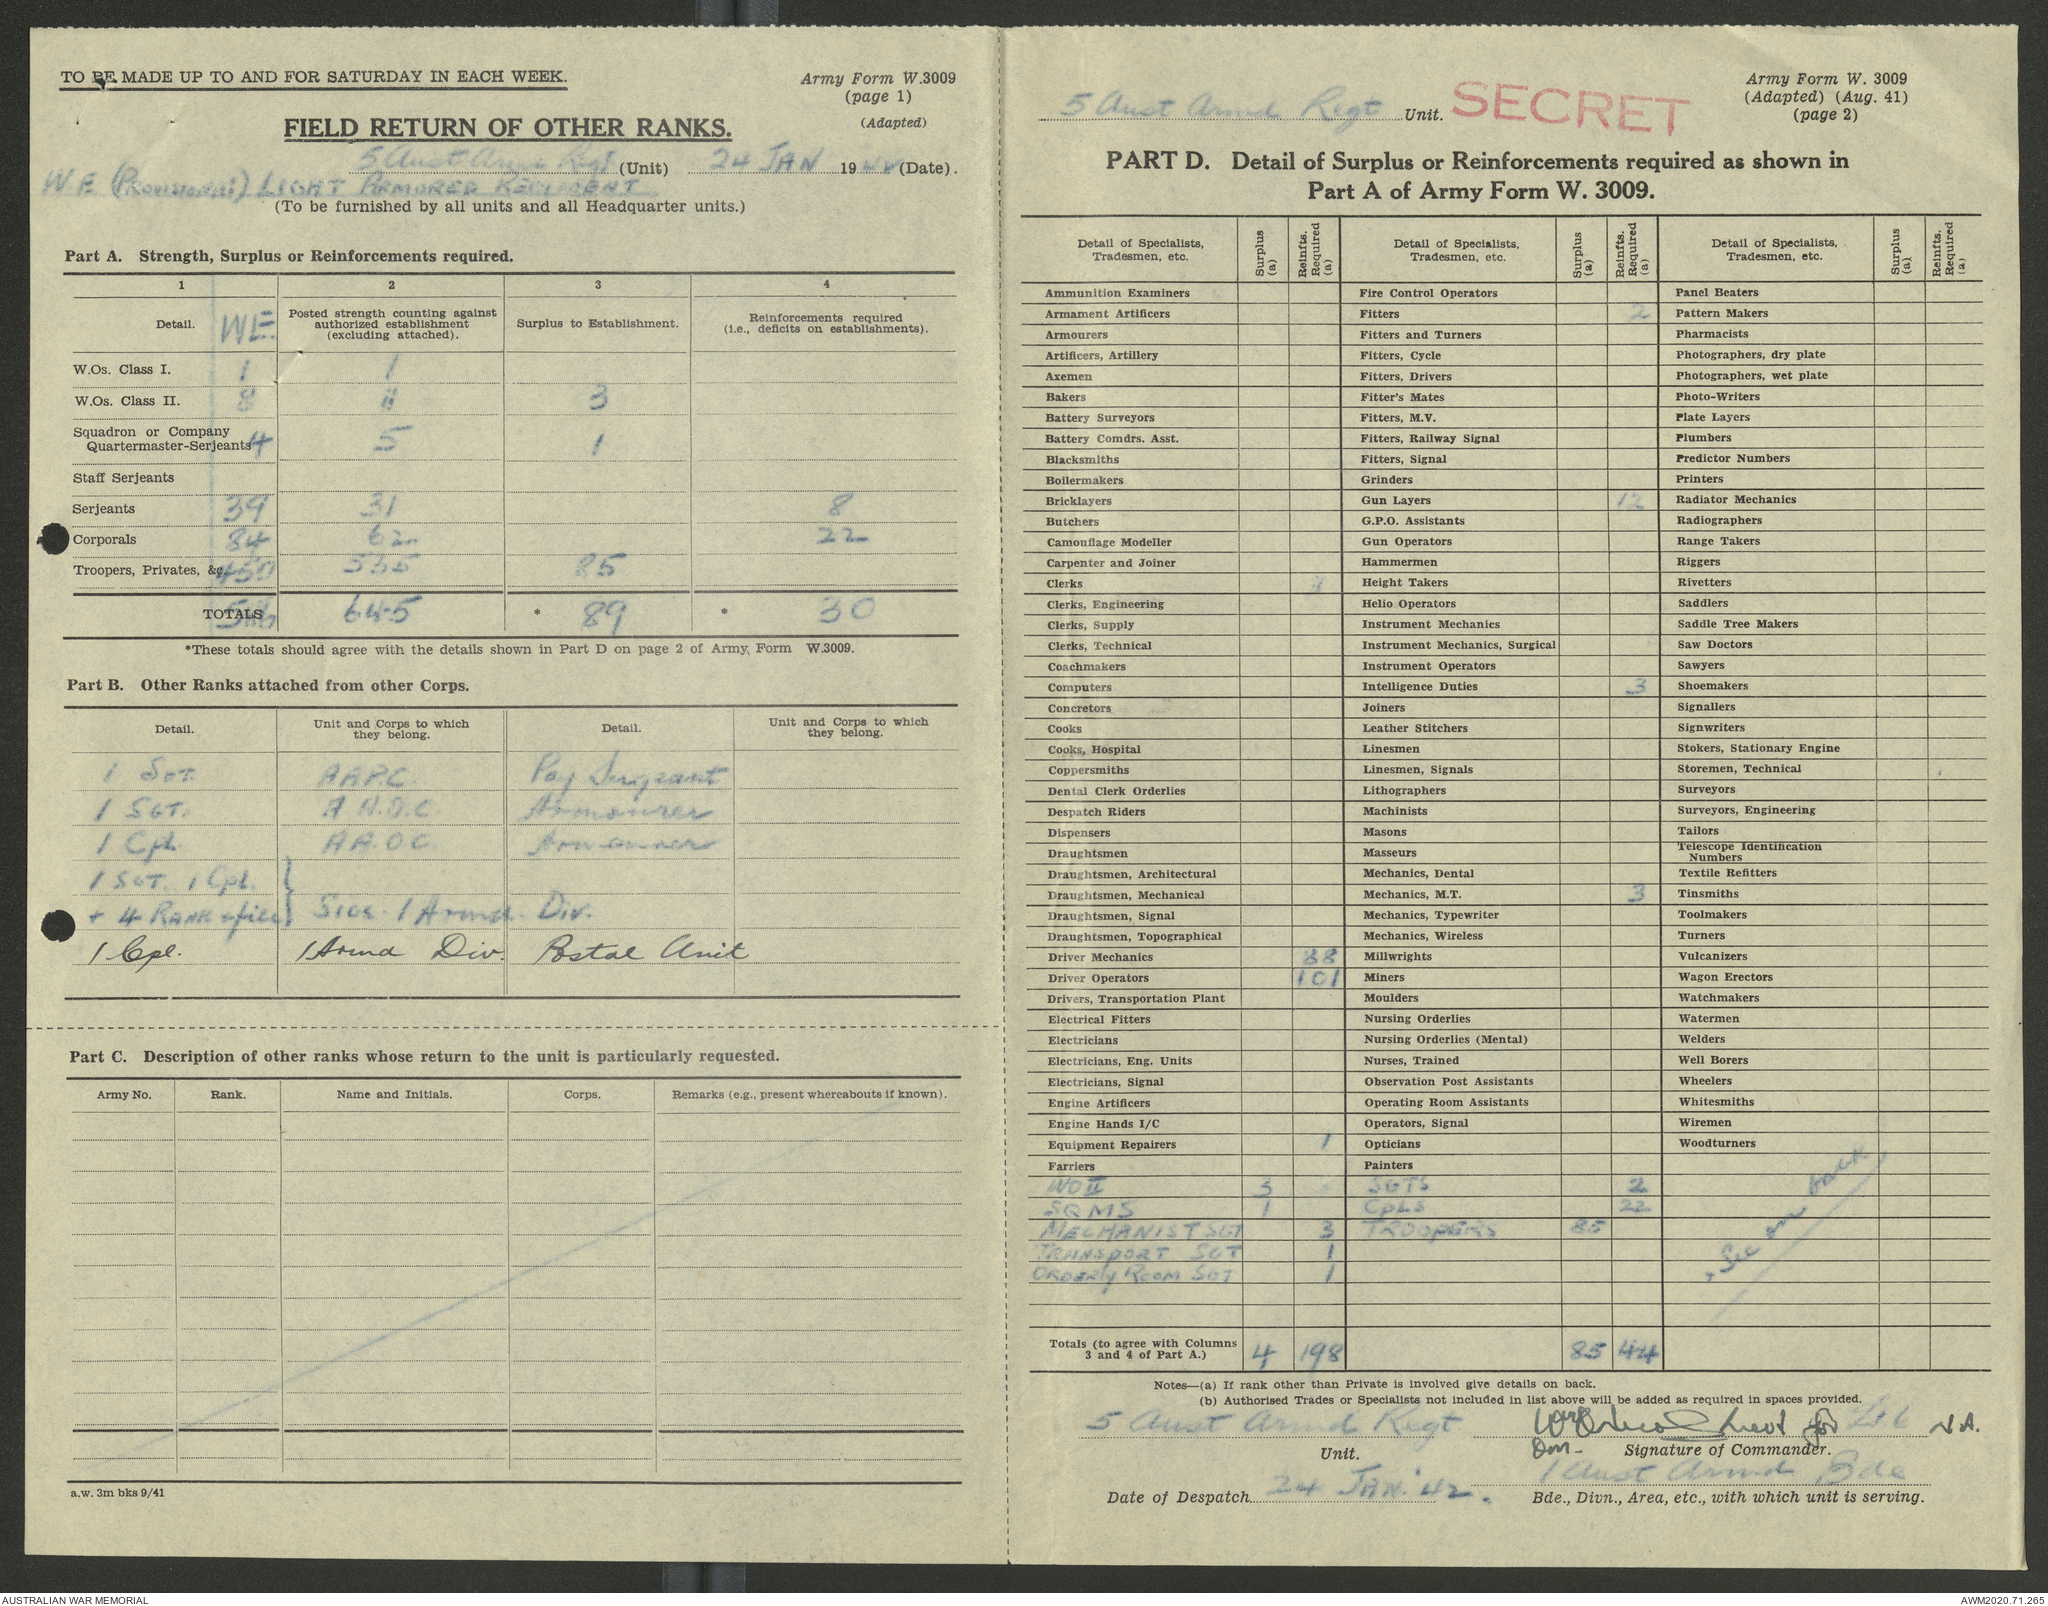 TO BE MADE UP TO AND FOR SATURDAY IN EACH WEEK.
Army Form W.3009
(page 1)
(Adapted)
FIELD RETURN OF OTHER RANKS.
5 Aust Armd Regt (Unit) 24 JAN 1942 (Date).
W E (Provisional) LIGHT ARMORED REGIMENT
(To be furnished by all units and all Headquarter units.)
Part A. Strength, Surplus or Reinforcements required.
1 2 3 4
Detail. WE Posted strength counting against authorized establishment (excluding attached). Surplus to Establishment. Reinforcements required (i.e., deficits on establishments).
W.Os. Class I. 1 1
W.Os. Class II. 8 11 3
Squadron or Company
Quartermaster-Serjeants 4 5 1
Staff Serjeants
Serjeants 39 31 8
Corporals 84 62 22
Troopers, Privates, &c. 450 535 85
TOTALS 586 645 * 89 * 30
*These totals should agree with the details shown in Part D on page 2 of Army Form W.3009.
Part B. Other Ranks attached from other Corps.
Detail. Unit and Corps to which they belong. Detail. Unit and Corps to which they belong.
1 SGT. AAPC. Pay Sergeant
1 SGT. A A.O.C Armourer
1 Cpl. AA.O.C. Armourer
1 SGT. 1 Cpl.
+ 4 RANK + file } SIGS. 1 Armd. Div.
1 Cpl. 1 Armd Div. Postal Unit
Part C. Description of other ranks whose return to the unit is particularly requested.
Army No. Rank. Name and Initials. Corps. Remarks (e.g., present whereabouts if known).
a.w. 3m bks 9/41
5 Aust Armd Regt Unit. SECRET
Army Form W. 3009
(Adapted) (Aug. 41)
(page 2)
PART D. Detail of Surplus or Reinforcements required as shown in
Part A of Army Form W. 3009.
Detail of Specialists, Tradesmen, etc. Surplus (a) Reinfts. Required (a) Detail of Specialists, Tradesmen, etc. Surplus (a) Reinfts. Required (a) Detail of Specialists, Tradesmen, etc. Surplus (a) Reinfts. Required (a)
Ammunition Examiners Fire Control Operators Panel Beaters
Armament Artificers Fitters 2 Pattern Makers
Armourers Fitters and Turners Pharmacists
Artificers, Artillery Fitters, Cycle Photographers, dry plate
Axemen Fitters, Drivers Photographers, wet plate
Bakers Fitter's Mates Photo-Writers
Battery Surveyors Fitters, M.V. Plate Layers
Battery Comdrs. Asst. Fitters, Railway Signal Plumbers
Blacksmiths Fitters, Signal Predictor Numbers
Boilermakers Grinders Printers
Bricklayers Gun Layers 12 Radiator Mechanics
Butchers G.P.O. Assistants Radiographers
Camouflage Modeller Gun Operators Range Takers
Carpenter and Joiner Hammermen Riggers
Clerks Height Takers Rivetters
Clerks, Engineering Helio Operators Saddlers
Clerks, Supply Instrument Mechanics Saddle Tree Makers
Clerks, Technical Instrument Mechanics, Surgical Saw Doctors
Coachmakers Instrument Operators Sawyers
Computers Intelligence Duties 3 Shoemakers
Concretors Joiners Signallers
Cooks Leather Stitchers Signwriters
Cooks, Hospital Linesmen Stokers, Stationary Engine
Coppersmiths Linesmen, Signals Storemen, Technical
Dental Clerk Orderlies Lithographers Surveyors
Despatch Riders Machinists Surveyors, Engineering
Dispensers Masons Tailors
Draughtsmen Masseurs Telescope Identification Numbers
Draughtsmen, Architectural Mechanics, Dental Textile Refitters
Draughtsmen, Mechanical Mechanics, M.T. 3 Tinsmiths
Draughtsmen, Signal Mechanics, Typewriter Toolmakers
Draughtsmen, Topographical Mechanics, Wireless Turners
Driver Mechanics 88 Millwrights Vulcanizers
Driver Operators 101 Miners Wagon Erectors
Drivers, Transportation Plant Moulders Watchmakers
Electrical Fitters Nursing Orderlies Watermen
Electricians Nursing Orderlies (Mental) Welders
Electricians, Eng. Units Nurses, Trained Well Borers
Electricians, Signal Observation Post Assistants Wheelers
Engine Artificers Operating Room Assistants Whitesmiths
Engine Hands I/C Operators, Signal Wiremen
Equipment Repairers 1 Opticians Woodturners
Farriers Painters
WO II 3 SGTS 2
SQMS 1 CPLS 22
MECHANIST SGT 3 TROOPERS 85
TRANSPORT SGT 1
ORDERLY ROOM SGT 1
See on back
Totals (to agree with Columns 3 and 4 of Part A.) 4 198 85 44
Notes—(a) If rank other than Private is involved give details on back.
(b) Authorised Trades or Specialists not included in list above will be added as required in spaces provided.
5 Aust Armd Regt Lieut for Lt C
Unit. Signature of Commander.
1 Aust Armd Bde
Date of Despatch 24 JAN. 42. Bde., Divn., Area, etc., with which unit is serving.
AUSTRALIAN WAR MEMORIAL
AWM2020.71.265